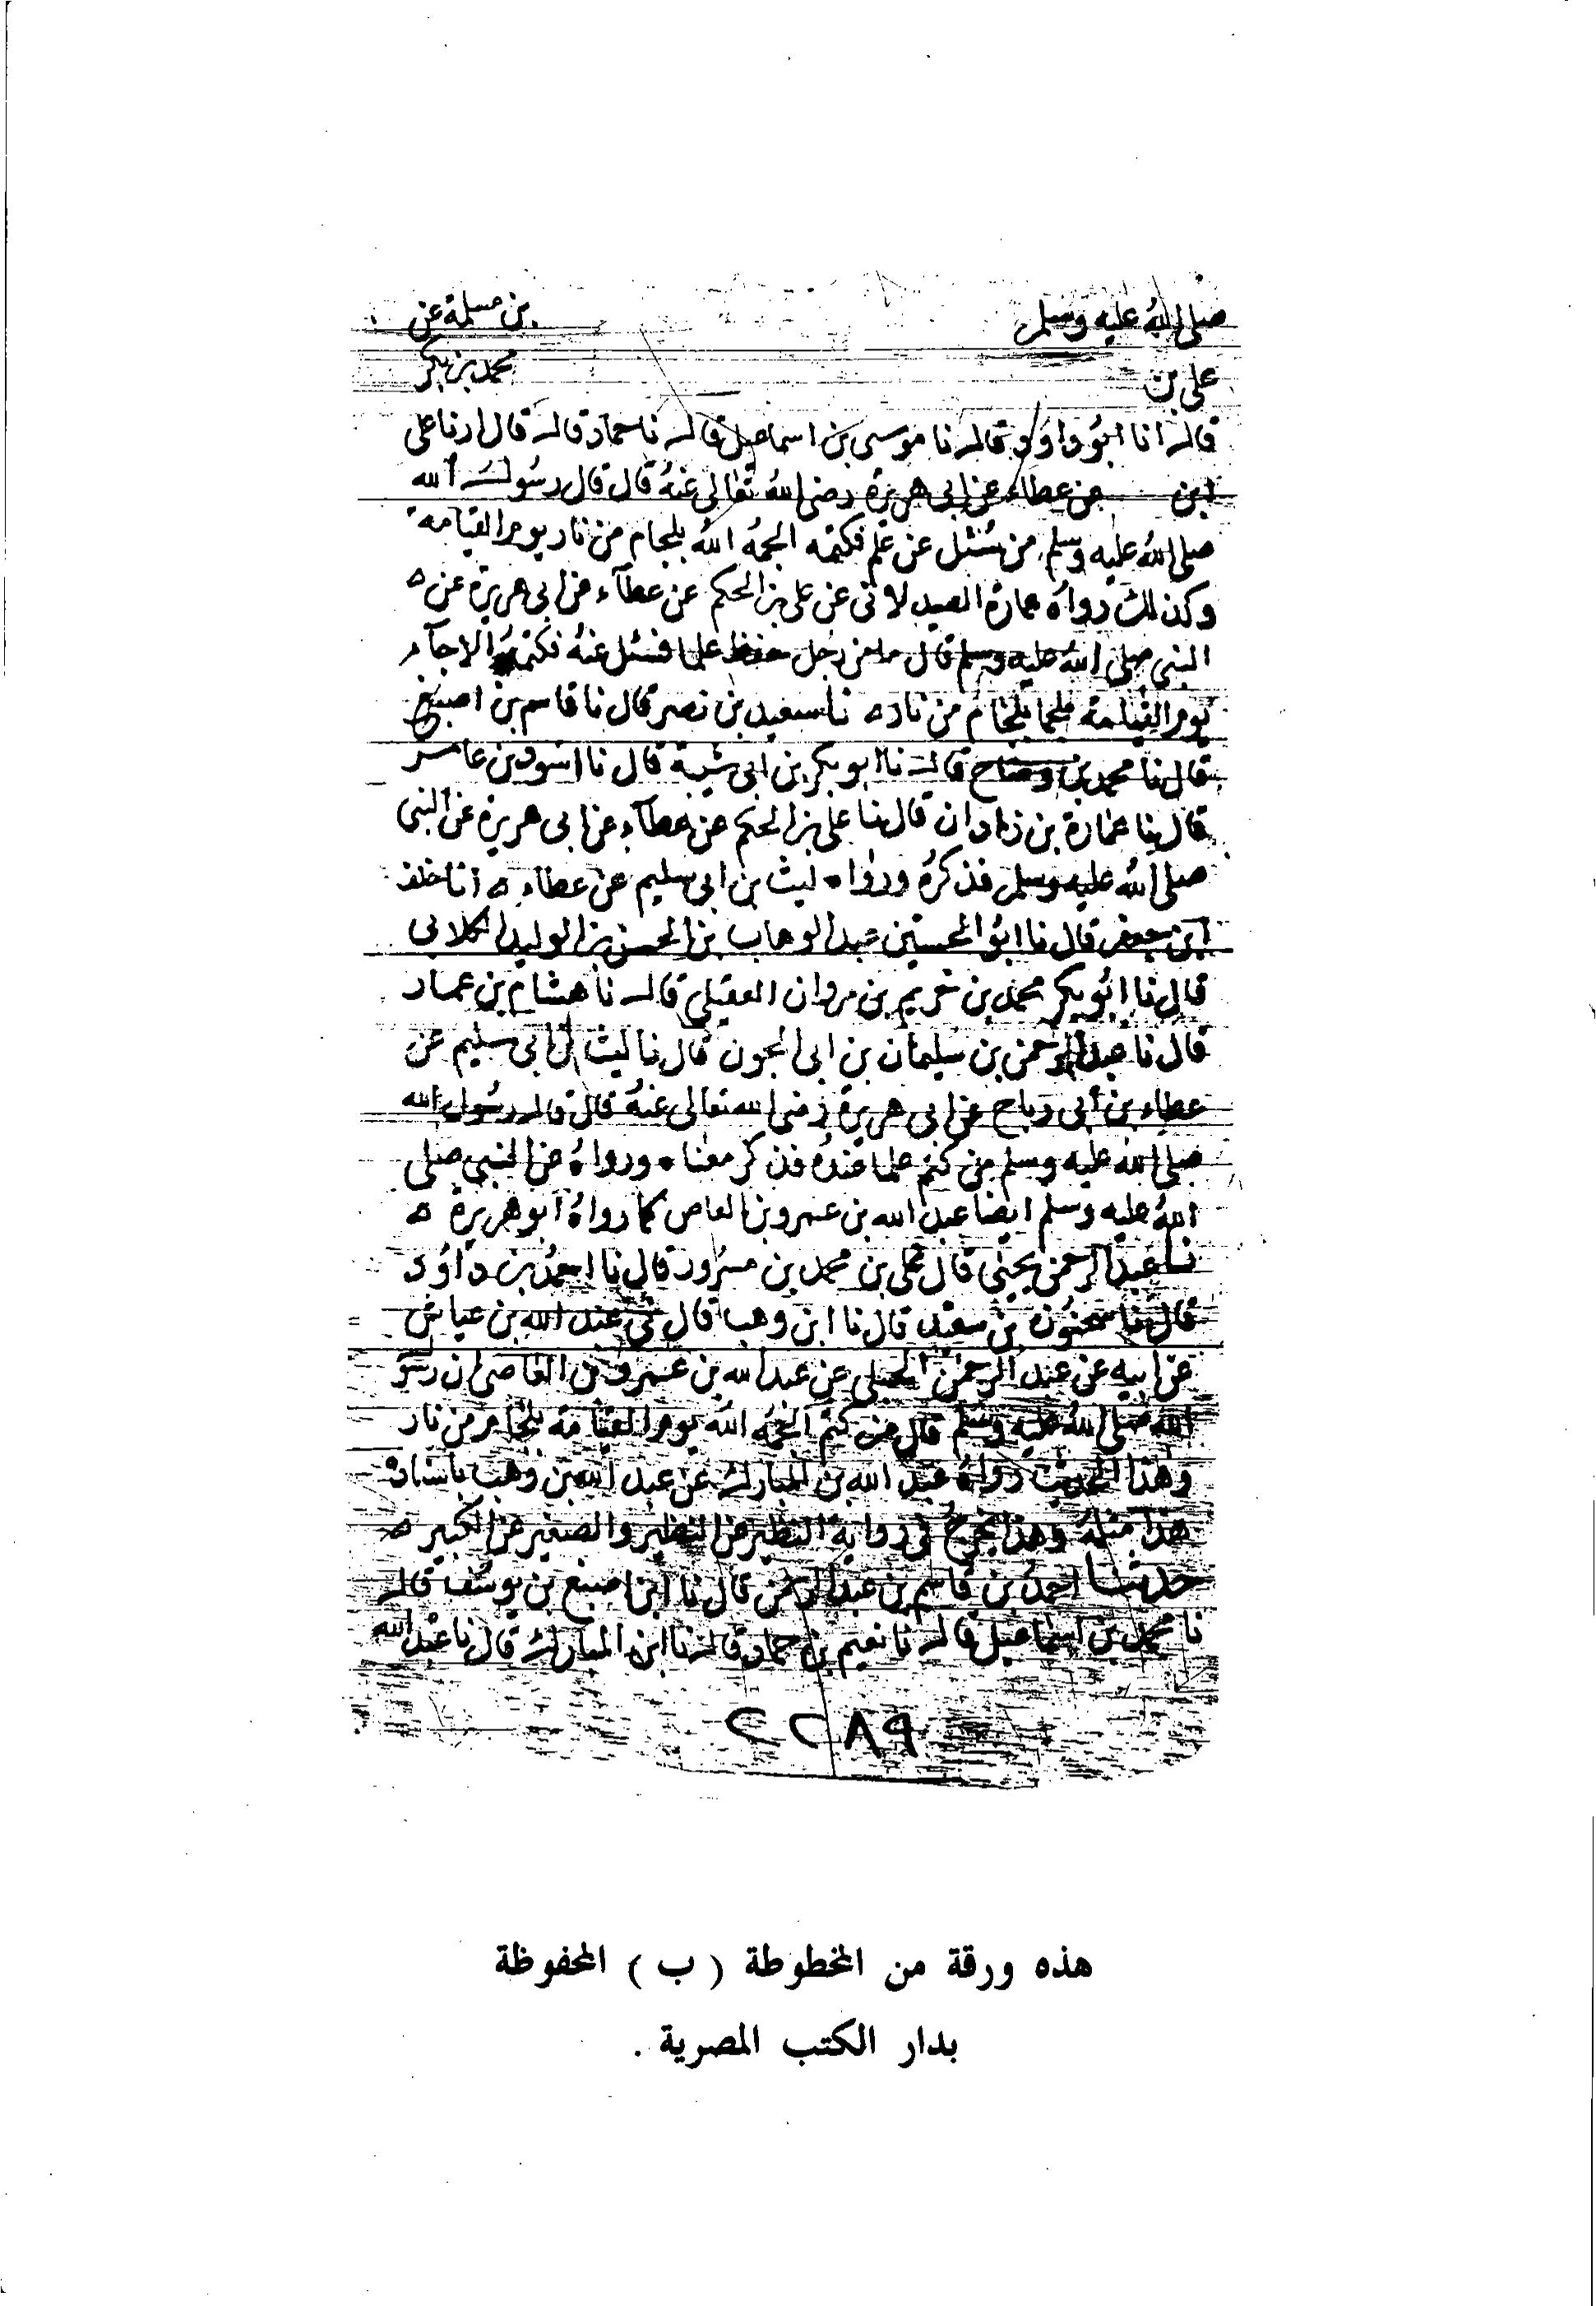 صلى الله عليه وسلم بن مسلمة عن
على بن محمد بن بكر
قال انا ابو داوود قال نا موسى بن اسماعيل قال نا حماد قال قال ارنا على
ابن عن عطاء عن ابى هريرة رضى الله تعالى عنه قال قال رسول الله
صلى الله عليه وسلم من سئل عن علم فكتمه الجمه الله بلجام من نار يوم القيامة
وكذلك رواه عمارة الصيدلانى عن على بن الحكم عن عطاء عن ابى هريرة عن ه
النبى صلى الله عليه وسلم قال ما من رجل حفظ علما فسئل عنه فكتمه الا جآء
يوم القيامة ملجما بلجام من نار ه نا سعيد بن نصر قال نا قاسم بن اصبغ
قال نا محمد بن وضاح قال نا ابو بكر بن ابى شيبة قال نا اسود بن عامر
قال نا عمارة بن زاذان قال نا على بن الحكم عن عطآء عن ابى هريرة عن النبى
صلى الله عليه وسلم فذكره ورواه ليث بن ابى سليم عن عطاء ه انا خلف
ابن جعفر قال نا ابو الحسين عبد الوهاب بن الحسن بن الوليد الكلابى
قال نا ابو بكر محمد بن خريم بن مروان العقيلي قال نا هشام بن عمار
قال نا عبد الرحمن بن سليمان بن ابى الجون قال نا ليث بن ابى سليم عن
عطاء بن أبى رباح عن ابى هريرة رضى الله تعالى عنه قال قال رسول الله
صلى الله عليه وسلم من كتم علما عنده فذكر معناه ورواه عن النبى صلى
الله عليه وسلم ايضا عبد الله بن عمرو بن العاص كما رواه ابو هريرة ه
نا عبد الرحمن يحيى قال على بن محمد بن مسرور قال نا احمد بن داؤد
قال نا سحنون بن سعيد قال نا ابن وهب قال ثنى عبد الله بن عياش
عن ابيه عن عبد الرحمن الحبلى عن عبد الله بن عمرو بن العاصى ان رسو
الله صلى الله عليه وسلم قال من كتم الجمه الله يوم القيامة بلجام من نار
وهذا الحديث رواه عبد الله بن المبارك عن عبد الله بن وهب باسناده
هذا مثله وهذا يخرج فى رواية النظير عن النظير والصغير عن الكبير ه
حدثنا احمد بن قاسم بن عبد الرحمن قال نا ابن اصبغ بن يوسف قال
نا محمد بن اسماعيل قال نا نعيم بن حماد قال نا ابن المبارك قال نا عبد الله
هذه ورقة من المخطوطة ( ب ) المحفوظة
بدار الكتب المصرية .